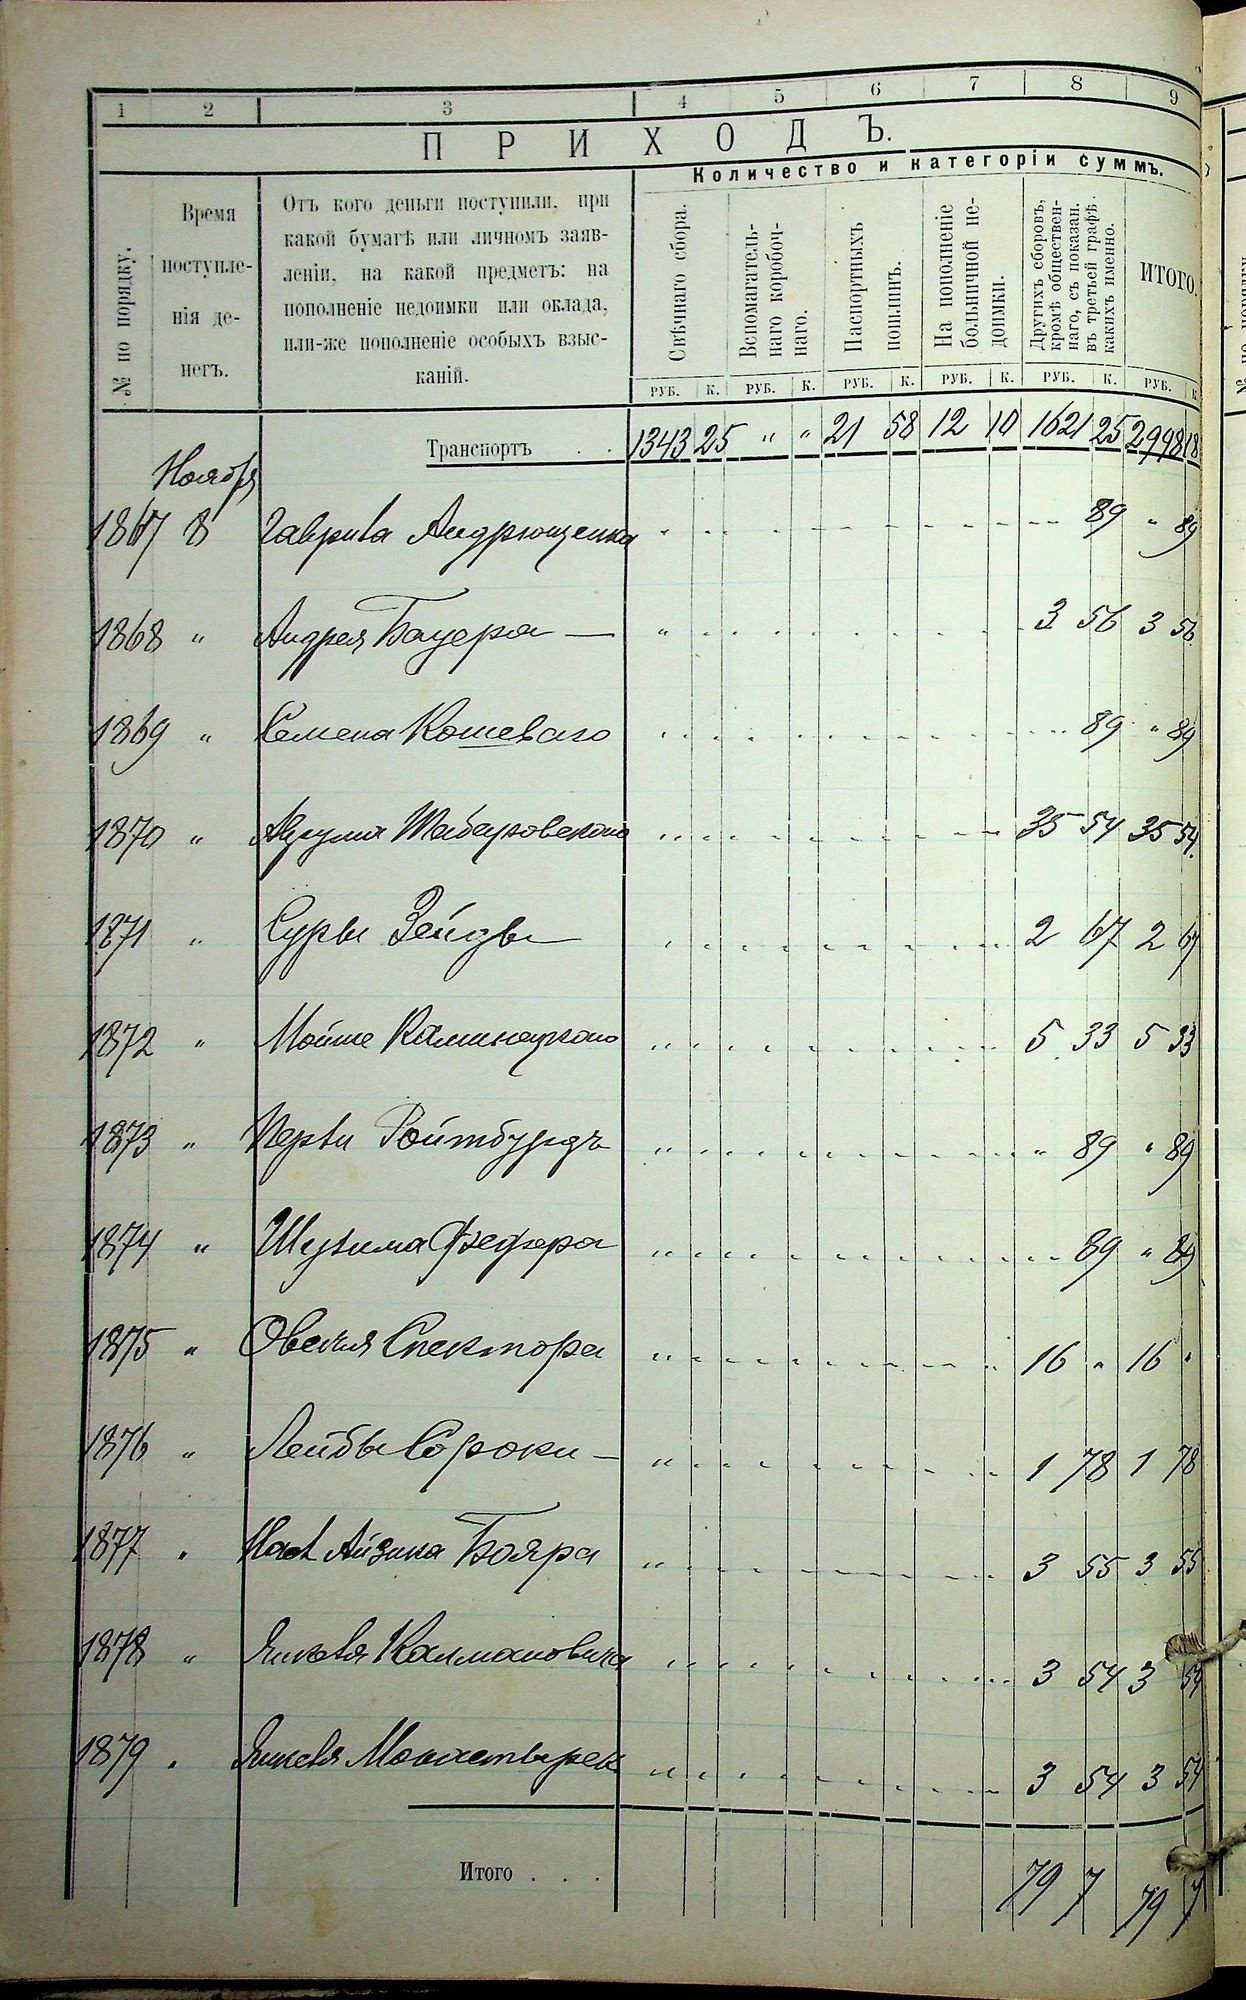 1 2 3 4 5 6 7 8 9
ПРИХОДЪ.
Количество и категоріи суммъ.
№ по порядку.
Время
поступле-
нія де-
негъ.
Отъ кого деньги поступили, при
какой бумагѣ или личномъ заяв-
леніи, на какой предметъ: на
пополненіе недоимки или оклада,
или-же пополненіе особыхъ взыс-
каній.
Свѣчнаго сбора.
Вспомагатель-
наго коробоч-
наго.
Паспортныхъ
пошлинъ.
На пополненіе
больничной не-
доимки.
Другихъ сборовъ,
кромѣ обществен-
наго, съ показан.
въ третьей графѣ,
какихъ именно.
ИТОГО.
РУБ. К. РУБ. К. РУБ. К. РУБ. К. РУБ. К. РУБ. К
Транспортъ . . 1343 25 " " 21 58 12 10 1621 25 2998 18
Ноября
1867 8 Гаврила Андрющенка 89 " 89
1868 " Андрея Бауера — 3 56 3 56
1869 " Семена Кошеваго 89 " 89
1870 " 35 54 35 54
1871 " Суры Зейды 2 67 2 67
1872 " Мойше Каминецкаго 5 33 5 33
1873 " Перли Ройтбурдъ " 89 " 89
1874 " Шулима Фефера 89 " 89
1875 " Овсея Спектора 16 " 16 "
1876 " Лейбы Сороки — 1 78 1 78
1877 " Насл Айзика Бояра 3 55 3 55
1878 " Янкеля Калмановича 3 54 3 54
1879 " Янкеля 3 54 3 54
Итого . . . 79 7 79 7